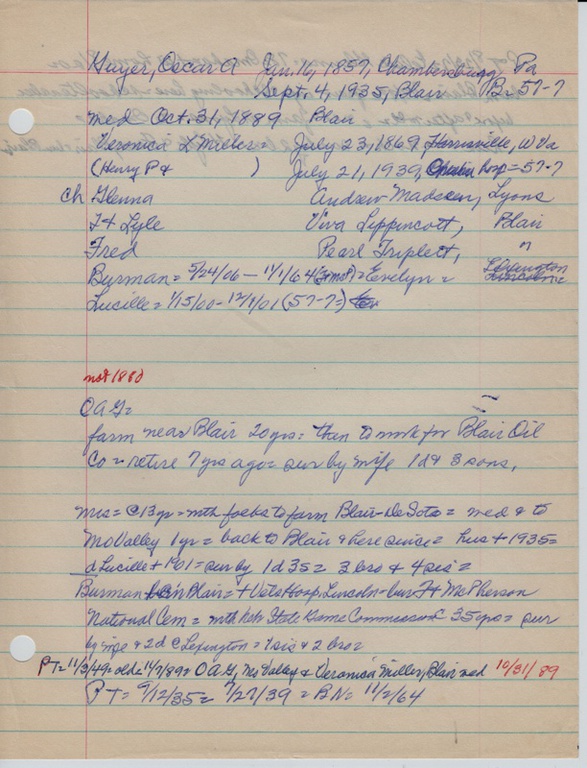 Guyer, Oscar A Jan. 16, 1857, Chambersburg, Pa
Sept. 4, 1935, Blair B. 57-7
med Oct. 31, 1889 Blair
Veronica L Miller = July 23, 1869, Harrisville, W Va
(Henry P & ) July 21, 1939, Omaha hosp = 57-7
ch Glenna Andrew Madsen, Lyons
J H Lyle Viva Lippincott, Blair
Fred Pearl Triplett, "
Burman = 5/24/06 - 11/1/64 = Evelyn = Lexington
Lucille = 1/15/00 - 12/1/01 (57-7=)
not 1880
OAG =
farm near Blair 20 yrs = then to work for Blair Oil
Co = retire 7 yrs ago = sur by wife 1d & 3 sons,
mrs = C 13 yr = mth to farm Blair-DeSoto = med & to
Mo Valley 1 yr = back to Blair & here since = hus + 1935 =
d Lucille + 1901 = sur by 1d 3s = 3 bro & 4 sis =
Burman Blair = + Vets Hosp, Lincoln = bur Ft McPherson
National Cem = mth Neb State Game Commission 35 yrs = sur
by wife & 2d C Lexington = 1 sis & 2 bro =
PT = 11/3/49 = old = 11/7/89 = OAG, Mo Valley & Veronica Miller, Blair med 10/31/89
PT = 9/12/35 = 7/27/39 = BN = 11/2/64